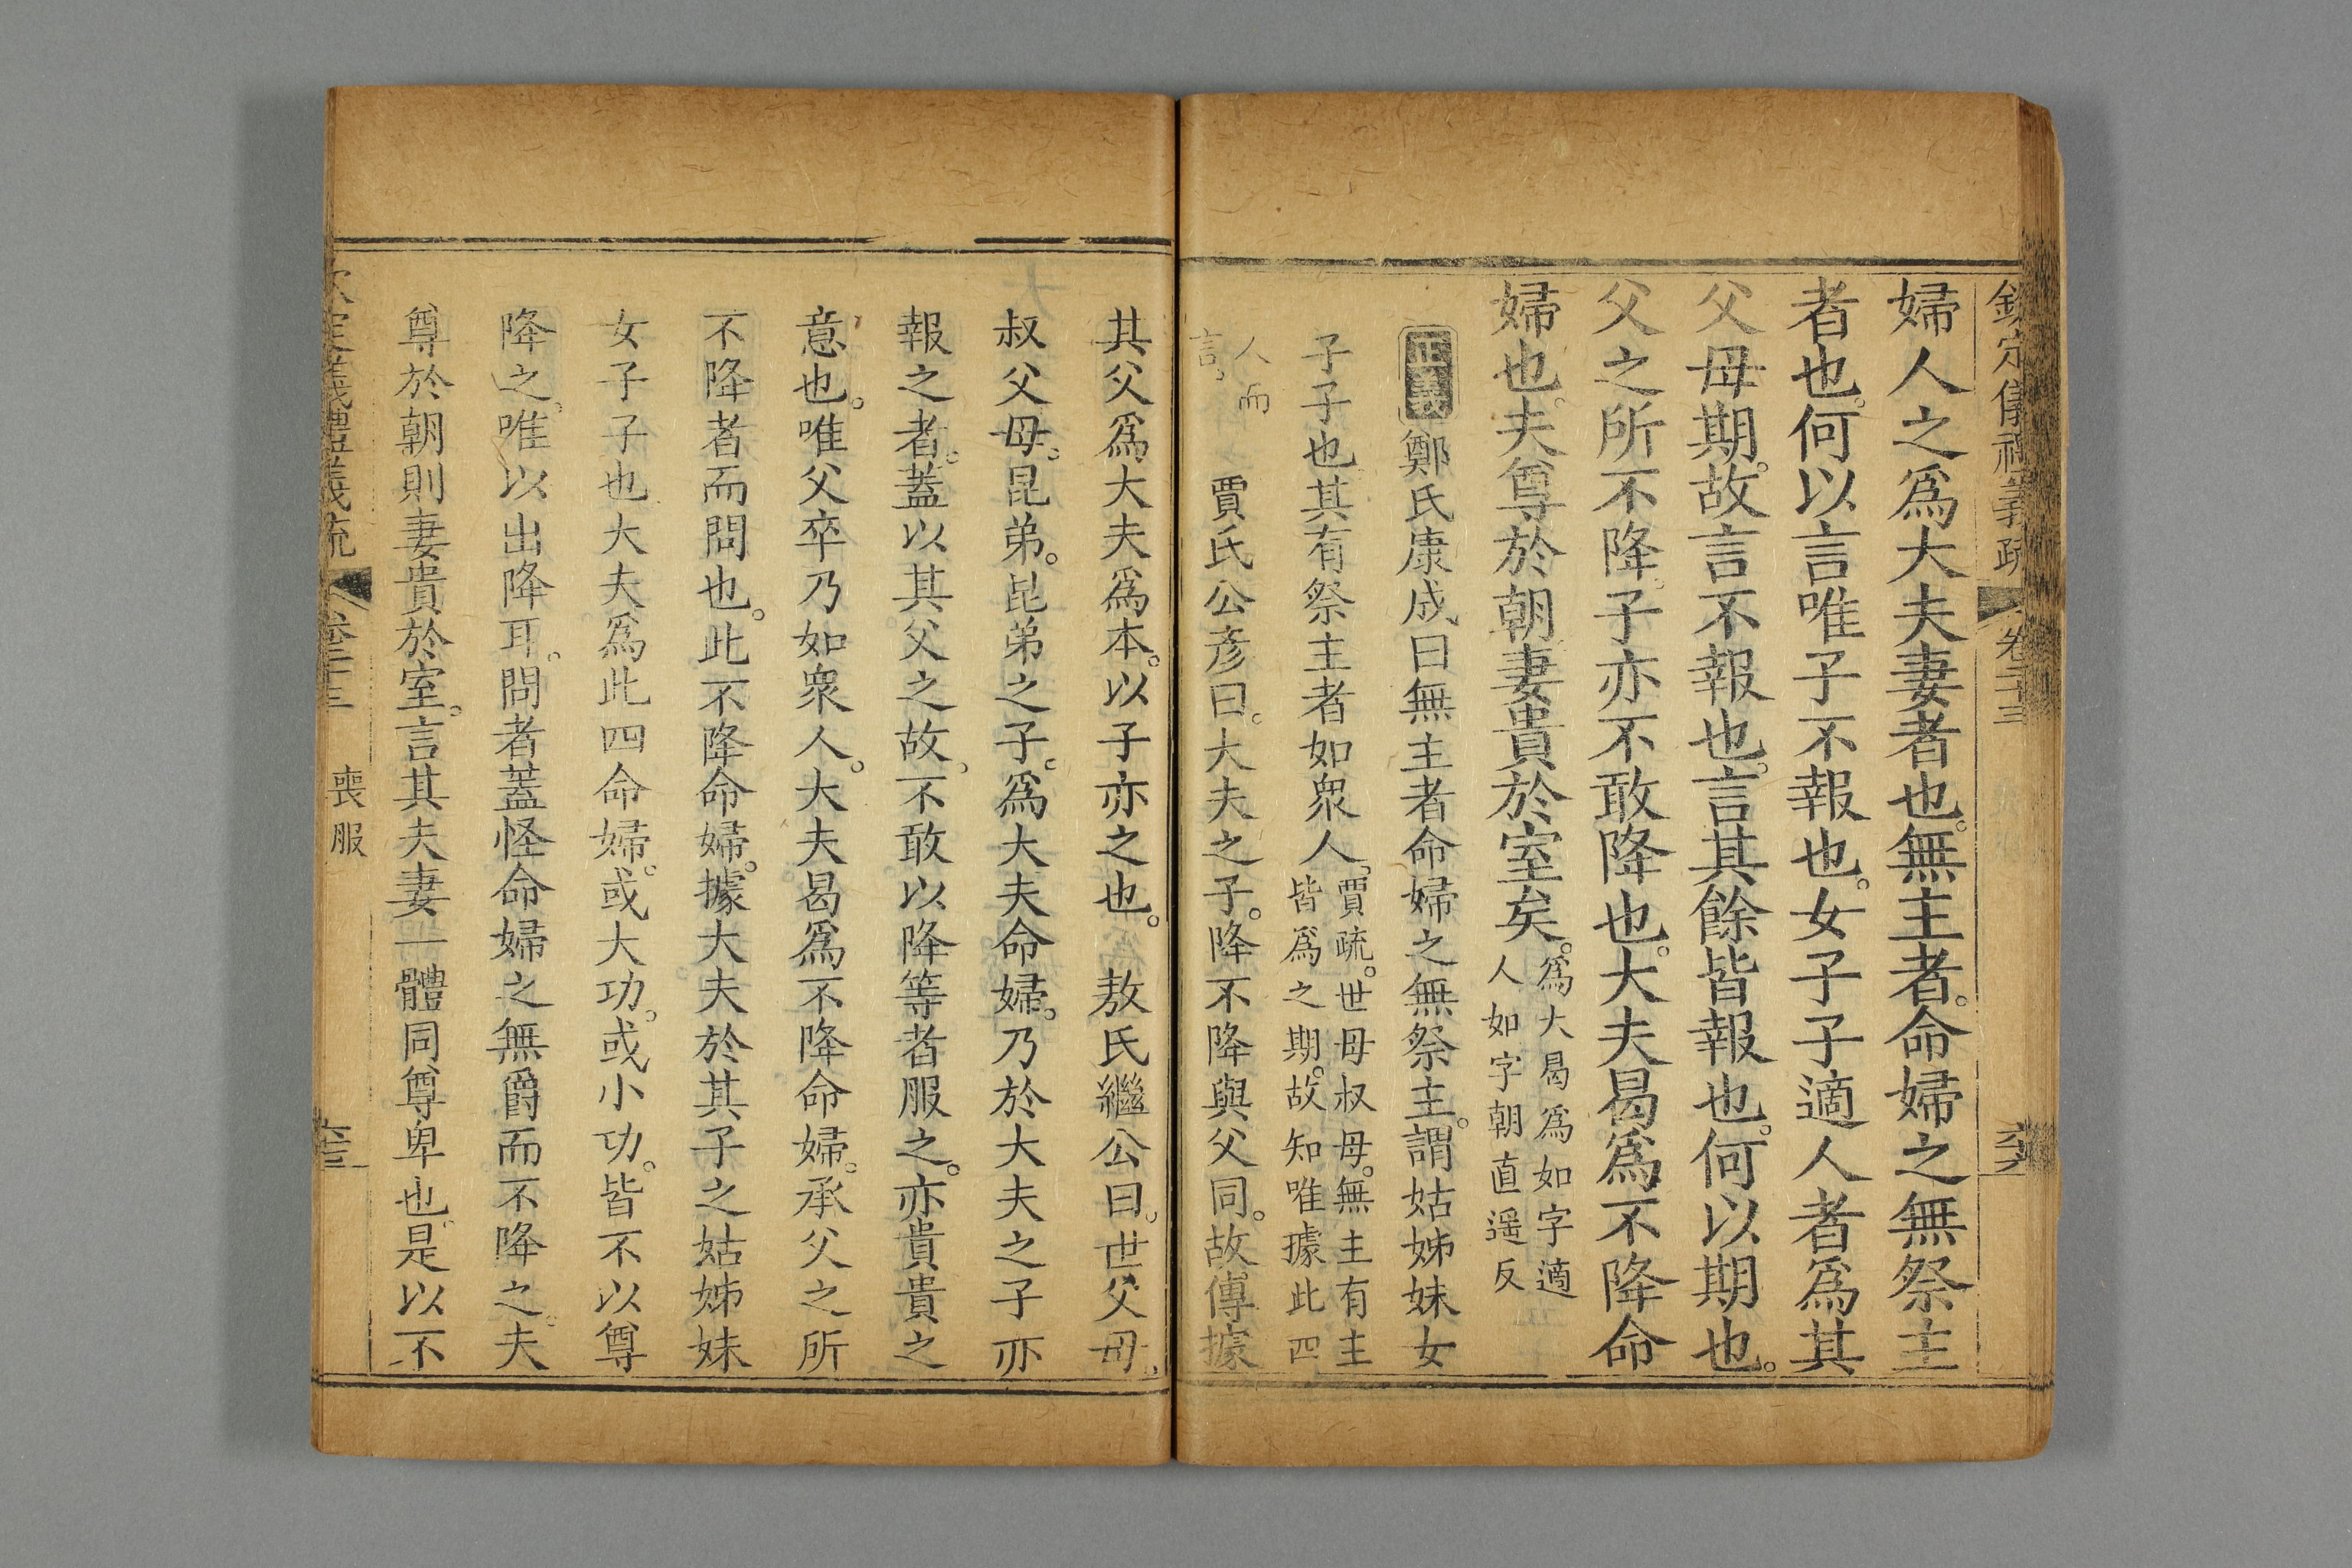 欽定儀禮義疏 卷二十三
婦人之爲大夫妻者也。無主者。命婦之無祭主
者也。何以言唯子不報也。女子子適人者爲其
父母期。故言不報也。言其餘皆報也。何以期也。
父之所不降。子亦不敢降也。大夫曷爲不降命
婦也。夫尊於朝妻貴於室矣。爲大曷爲如字適
人如字朝直遥反
正義 鄭氏康成曰無主者命婦之無祭主。謂姑姊妹女
子子也其有祭主者如衆人。賈疏。世母叔母。無主有主
皆爲之期。故知唯據此四
人而
言。 賈氏公彦曰。大夫之子。降不降與父同。故傳據
其父爲大夫爲本。以子亦之也。 敖氏繼公曰。世父母。
叔父母。昆弟。昆弟之子。爲大夫命婦。乃於大夫之子亦
報之者。蓋以其父之故。不敢以降等者服之。亦貴貴之
意也。唯父卒乃如衆人。大夫曷爲不降命婦。承父之所
不降者而問也。此不降命婦。據大夫於其子之姑姊妹
女子子也大夫爲此四命婦。或大功。或小功。皆不以尊
降之。唯以出降耳。問者蓋怪命婦之無爵而不降之。夫
尊於朝則妻貴於室。言其夫妻一體同尊卑也。是以不
欽定儀禮義疏 卷二十三 喪服 六十三